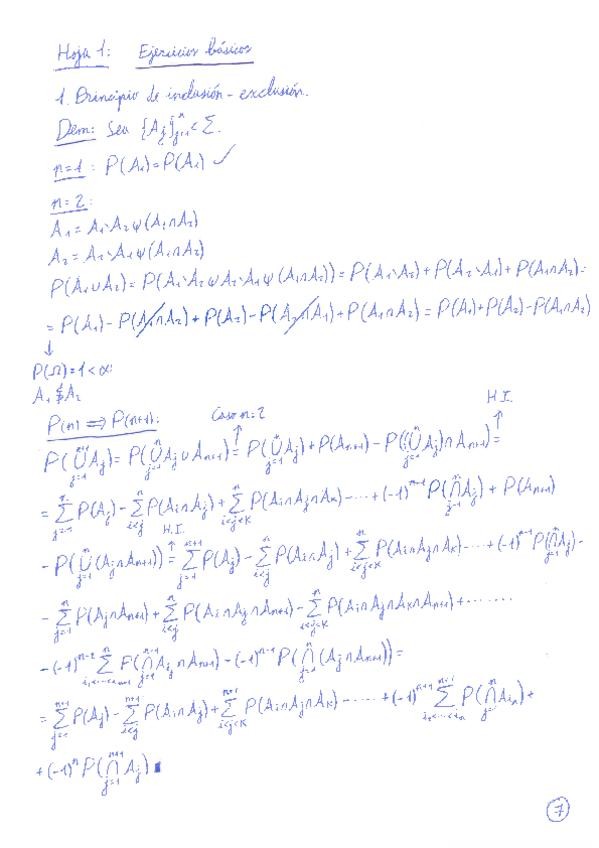 Hoja 1: Ejercicios básicos
1. Principio de inclusión-exclusión.
Dem: Sea {A_j}_{j=1}^n ⊂ Σ.
n=1: P(A₁)=P(A₁) ✓
n=2:
A₁ = A₁∖A₂ ⊎ (A₁∩A₂)
A₂ = A₂∖A₁ ⊎ (A₁∩A₂)
P(A₁∪A₂) = P(A₁∖A₂ ⊎ A₂∖A₁ ⊎ (A₁∩A₂)) = P(A₁∖A₂) + P(A₂∖A₁) + P(A₁∩A₂) =
= P(A₁) - P(A₁∩A₂) + P(A₂) - P(A₂∩A₁) + P(A₁∩A₂) = P(A₁) + P(A₂) - P(A₁∩A₂)
↓
P(Ω)=1<∞
A₁ ⊄ A₂
H.I.
P(n) ⟹ P(n+1): Caso n=2 ↑
P(⋃_{j=1}^{n+1} A_j) = P(⋃_{j=1}^n A_j ∪ A_{n+1}) = P(⋃_{j=1}^n A_j) + P(A_{n+1}) - P((⋃_{j=1}^n A_j) ∩ A_{n+1}) =
= ∑_{j=1}^n P(A_j) - ∑_{i<j}^n P(A_i∩A_j) + ∑_{i<j<k}^n P(A_i∩A_j∩A_k) - ⋯ + (-1)^{n-1} P(⋂_{j=1}^n A_j) + P(A_{n+1})
H.I.
- P(⋃_{j=1}^n (A_j∩A_{n+1})) = ∑_{j=1}^{n+1} P(A_j) - ∑_{i<j}^n P(A_i∩A_j) + ∑_{i<j<k}^n P(A_i∩A_j∩A_k) - ⋯ + (-1)^{n-1} P(⋂_{j=1}^n A_j) -
- ∑_{j=1}^n P(A_j∩A_{n+1}) + ∑_{i<j}^n P(A_i∩A_j∩A_{n+1}) - ∑_{i<j<k}^n P(A_i∩A_j∩A_k∩A_{n+1}) + ⋯
- (-1)^{n-2} ∑_{i₁<⋯<i_{n-1}}^n P(⋂_{j=1}^n A_j∩A_{n+1}) - (-1)^{n-1} P(⋂_{j=1}^n (A_j∩A_{n+1})) =
= ∑_{j=1}^{n+1} P(A_j) - ∑_{i<j}^{n+1} P(A_i∩A_j) + ∑_{i<j<k}^{n+1} P(A_i∩A_j∩A_k) - ⋯ + (-1)^{n+1} ∑_{i₁<⋯<i_n}^{n+1} P(⋂_{j=1}^n A_{i_n}) +
+ (-1)^n P(⋂_{j=1}^{n+1} A_j) ∎
7